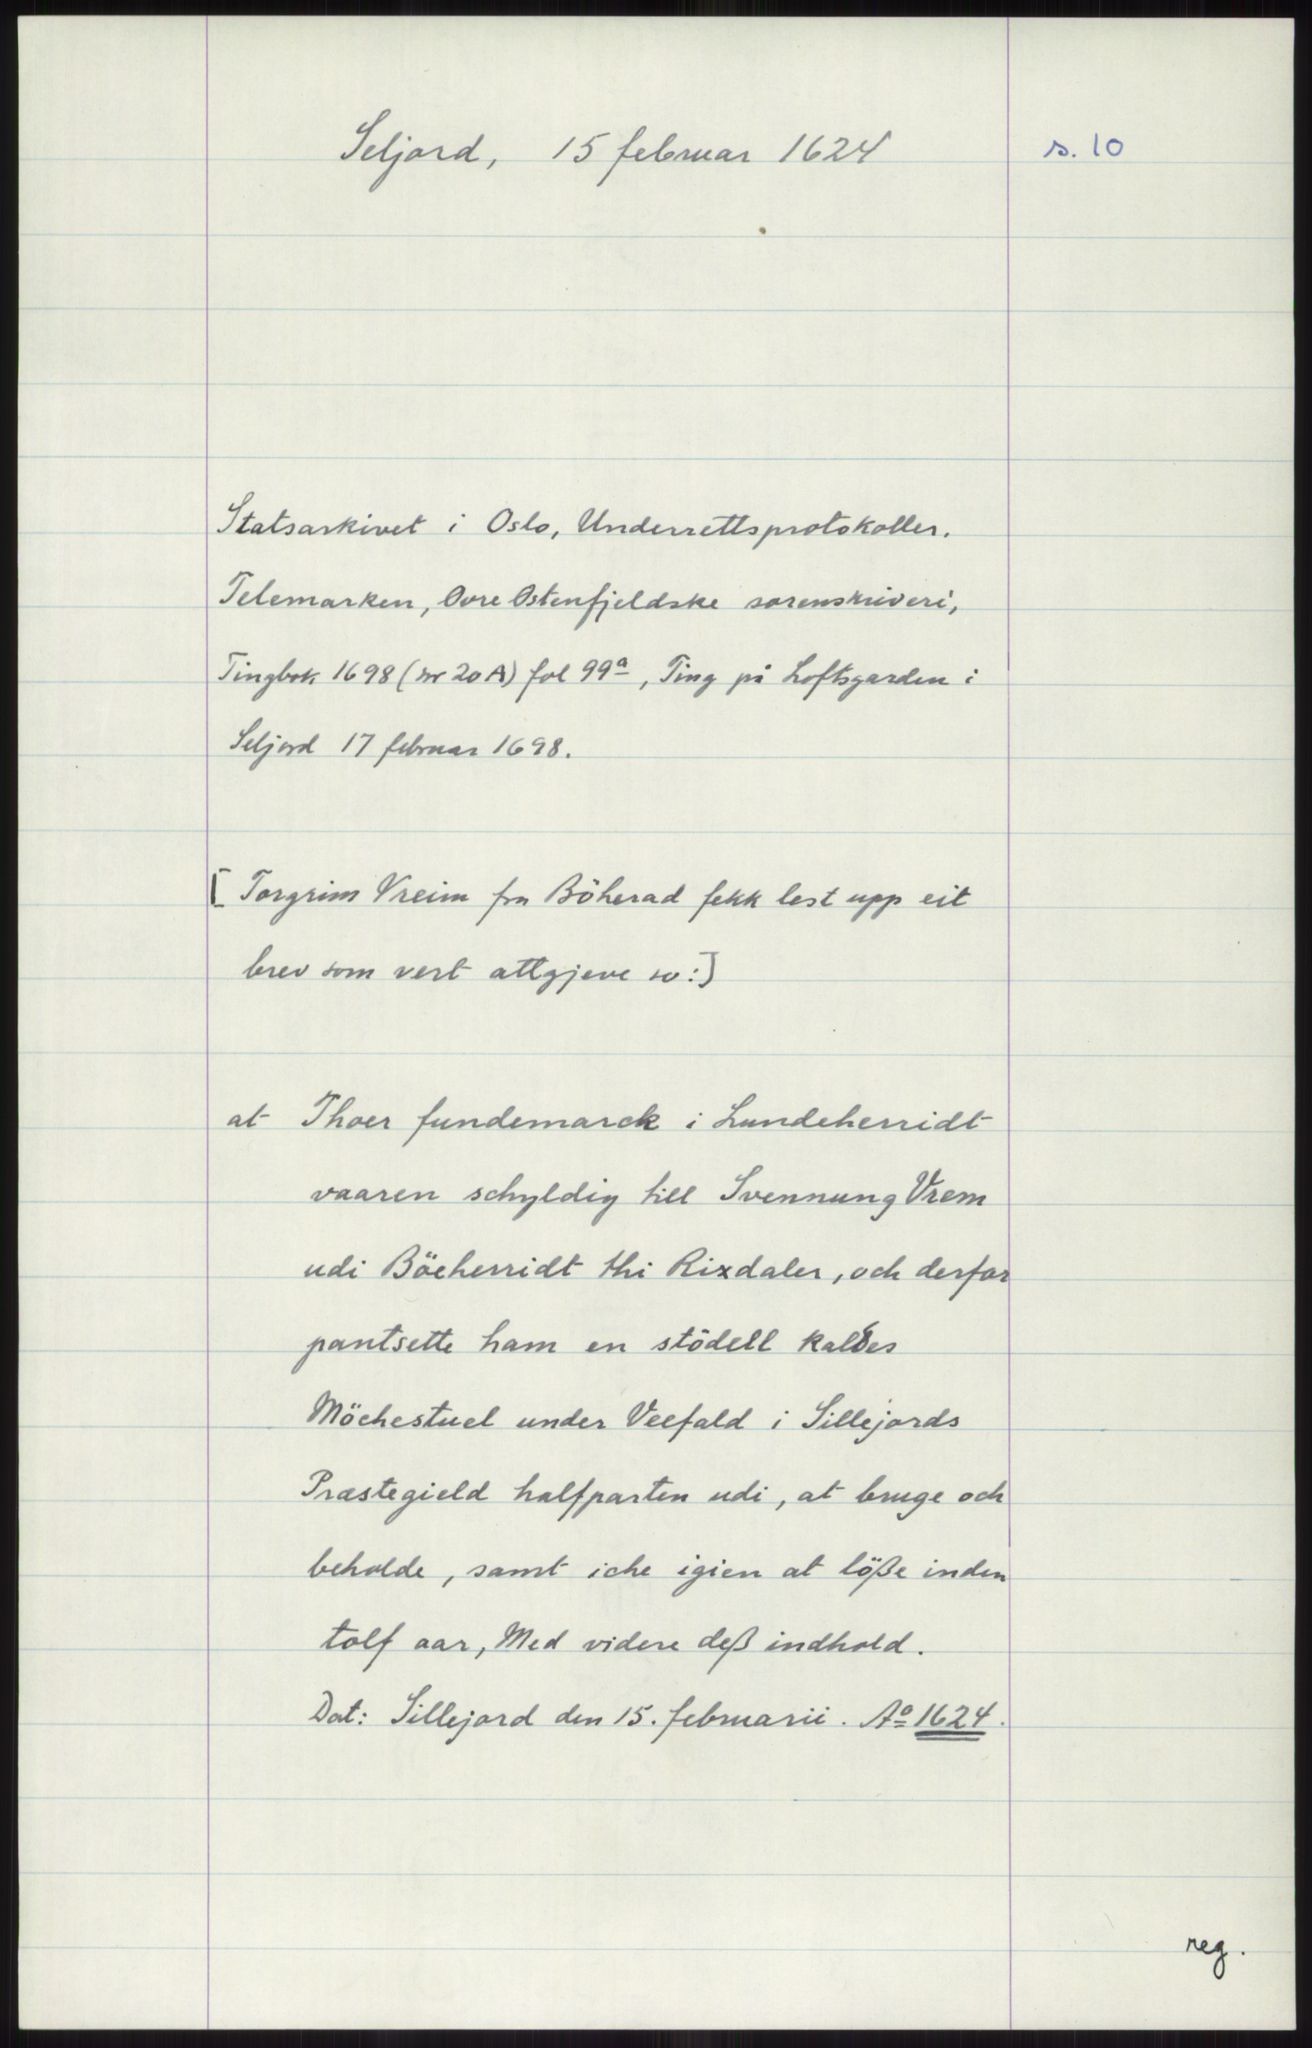 Seljord, 15 februar 1624
s. 10
Statsarkivet i Oslo, Underrettsprotokoller.
Telemarken, Ovre Ostenfjeldske sorenskriveri,
Tingbok 1698 (nr 20 A) fol 99a, Ting på Loftsgarden i
Seljord 17 februar 1698.
[Torgrim Vreim fra Böherad fekk lest upp eit
brev som vert attgjeve so:]
at Thoer fundemarck i Lundeherridt
vaaren schyldig till Svennung Vrem
udi Böeherridt thi Rixdaler, och derfor
pantsette ham en stödell kaldes
Möchestuel under Veefald i Sillejords
Præstegield halfparten udi, at bruge och
beholde, samt iche igien at löße inden
tolf aar, Med videre deß indhold.
Dat: Sillejord den 15. februarii. Ao 1624.
reg.